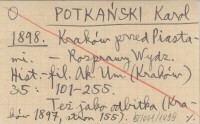 POTKAŃSKI Karol
1898. Kraków przed Piasta-
mi. — Rozprawy Wydz.
Hist-fil. Ak. Um. (Kraków)
35: 101-255.
Też jako odbitka (Kra-
ków 1897, stron 155).